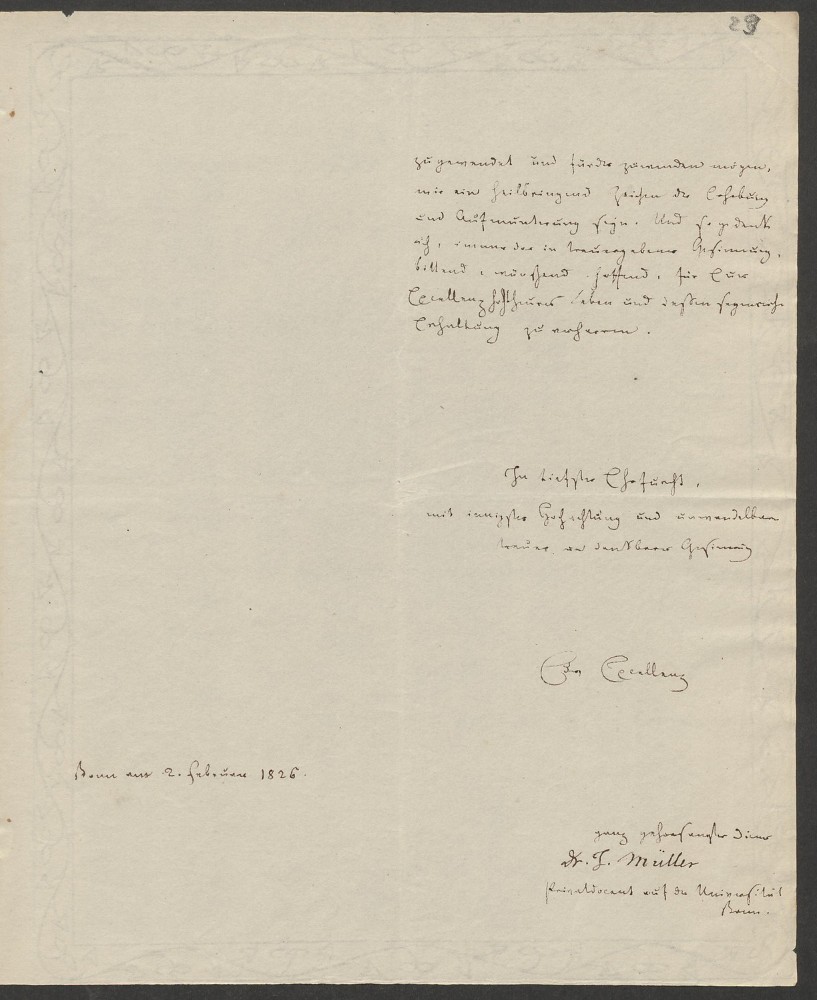 zugewendet und fürder zuwenden mögen,
mir ein heilbringend Zeichen der Erhebung
und Aufmunterung seyn. Und so gedenke
ich, immerdar in treuergebener Gesinnung,
bittend, wünschend, hoffend, für Eure
Excellenz hochtheures Leben und dessen segensreiche
Erhaltung zu verharren.
In tiefster Ehrfurcht,
mit innigster Hochachtung und unwandelbar
treuer dankbarer Gesinnung
Ew Excellenz
Bonn am 2. Februar 1826.
ganz gehorsamster Diener
Dr. J. Müller
Privatdocent auf der Universität
Bonn.